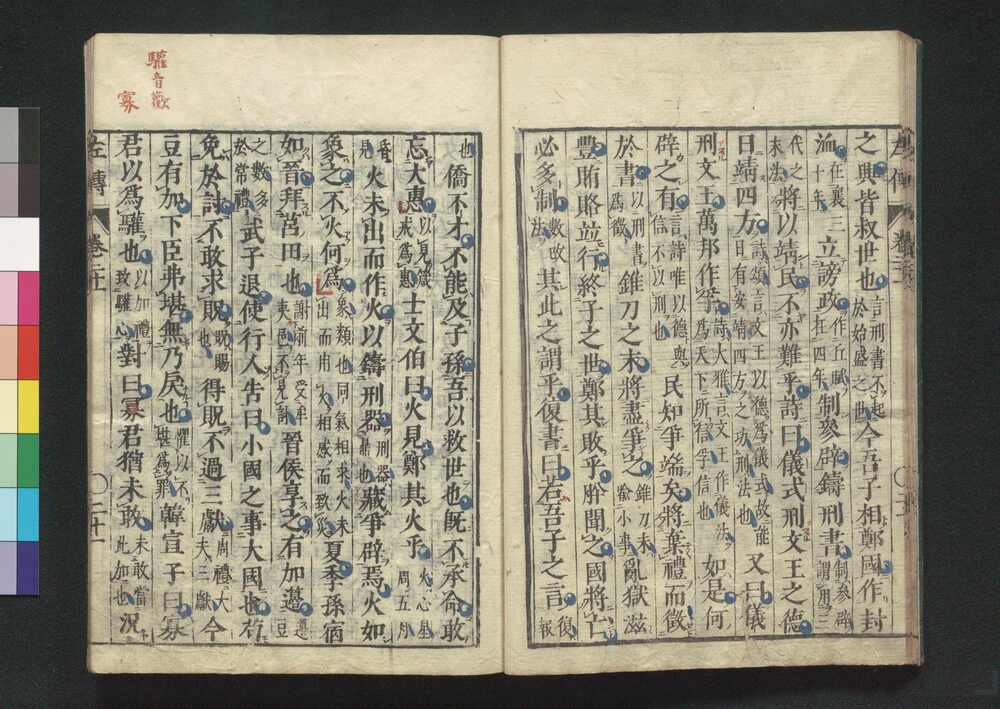 之興皆叔世也言刑書不起於始盛之世今吾子相鄭國作封
洫在襄三十年立謗政作丘賦在四年制參辟鑄刑書制參辟謂用三
代之末法將以靖民不亦難乎詩曰儀式刑文王之德
日靖四方詩頌言文王以德為儀式故能日有安靖四方之功刑法也又曰儀
刑文王萬邦作孚詩大雅言文王作儀法為天下所信孚信也如是何
辟之有言詩唯以德與信不以刑也民知爭端矣將棄禮而徵
於書以刑書為徵錐刀之末將盡爭之錐刀末喻小事亂獄滋
豐賄賂並行終子之世鄭其敗乎肸聞之國將亡
必多制數改法其此之謂乎復書曰若吾子之言復報
也僑不才不能及子孫吾以救世也既不承命敢
忘大惠以見箴戒為惠士文伯曰火見鄭其火乎火心星周五月昏
見火未出而作火以鑄刑器刑器鼎也藏爭辟焉火如
象之不火何為象類也同氣相求火未出而用火相感而致災夏季孫宿
如晉拜莒田也謝前年受牟夷邑不見討晉侯享之有加籩籩豆
之數多於常禮武子退使行人告曰小國之事大國也苟
免於討不敢求貺貺賜也得貺不過三獻周禮大夫三獻今
豆有加下臣弗堪無乃戾也懼以不堪為罪韓宣子曰寡
君以為驩也以加禮致驩心對曰寡君猶未敢未敢當此加也況
左傳
卷二十
二十一
驩音歡
寡